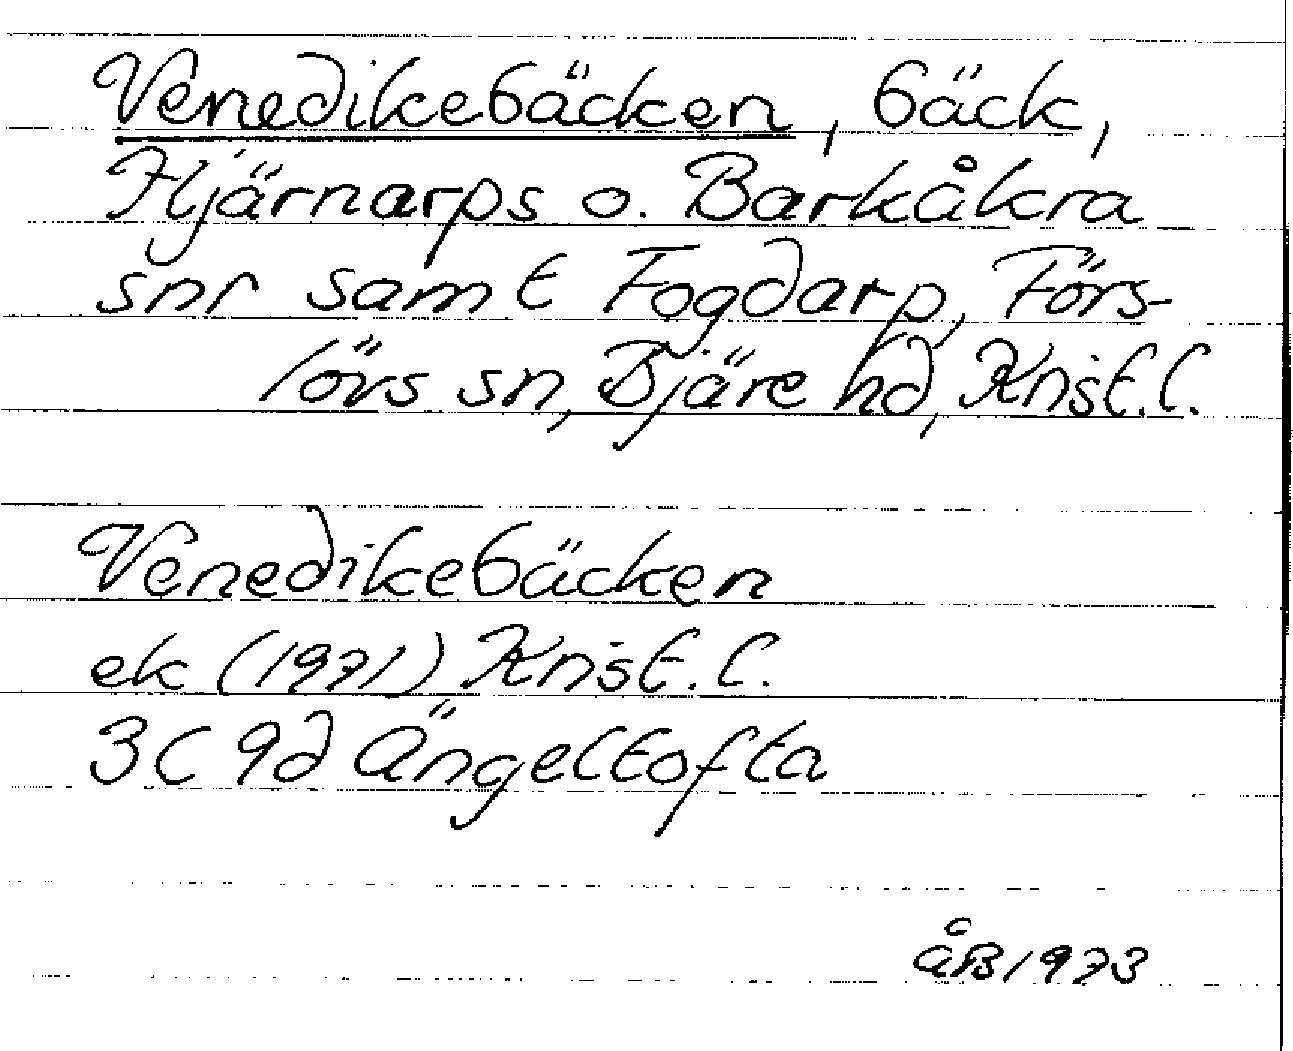 Venedikebäcken, bäck,
Hjärnarps o. Barkåkra
snr samt Fogdarp, Förs-
lövs sn, Bjäre hd, Krist. l.
Venedikebäcken
ek (1971) Krist. l.
3C 9d Ängeltofta
ÅB 1973